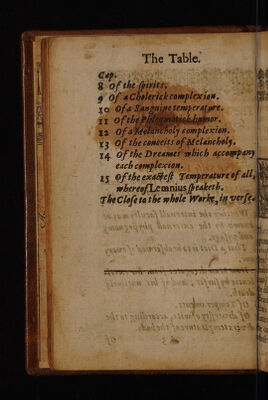 The Table.
Cap.
8 Of the spirits.
9 Of a Cholerick complexion.
10 Of a Sanguine temperature.
11 Of the Phlegmatick humor.
12 Of a Melancholy complexion.
13 Of the conceits of Melancholy.
14 Of the Dreames which accompany
each complexion.
15 Of the exactest Temperature of all,
whereof Lemnius speaketh.
The Close to the whole Worke, in verse.